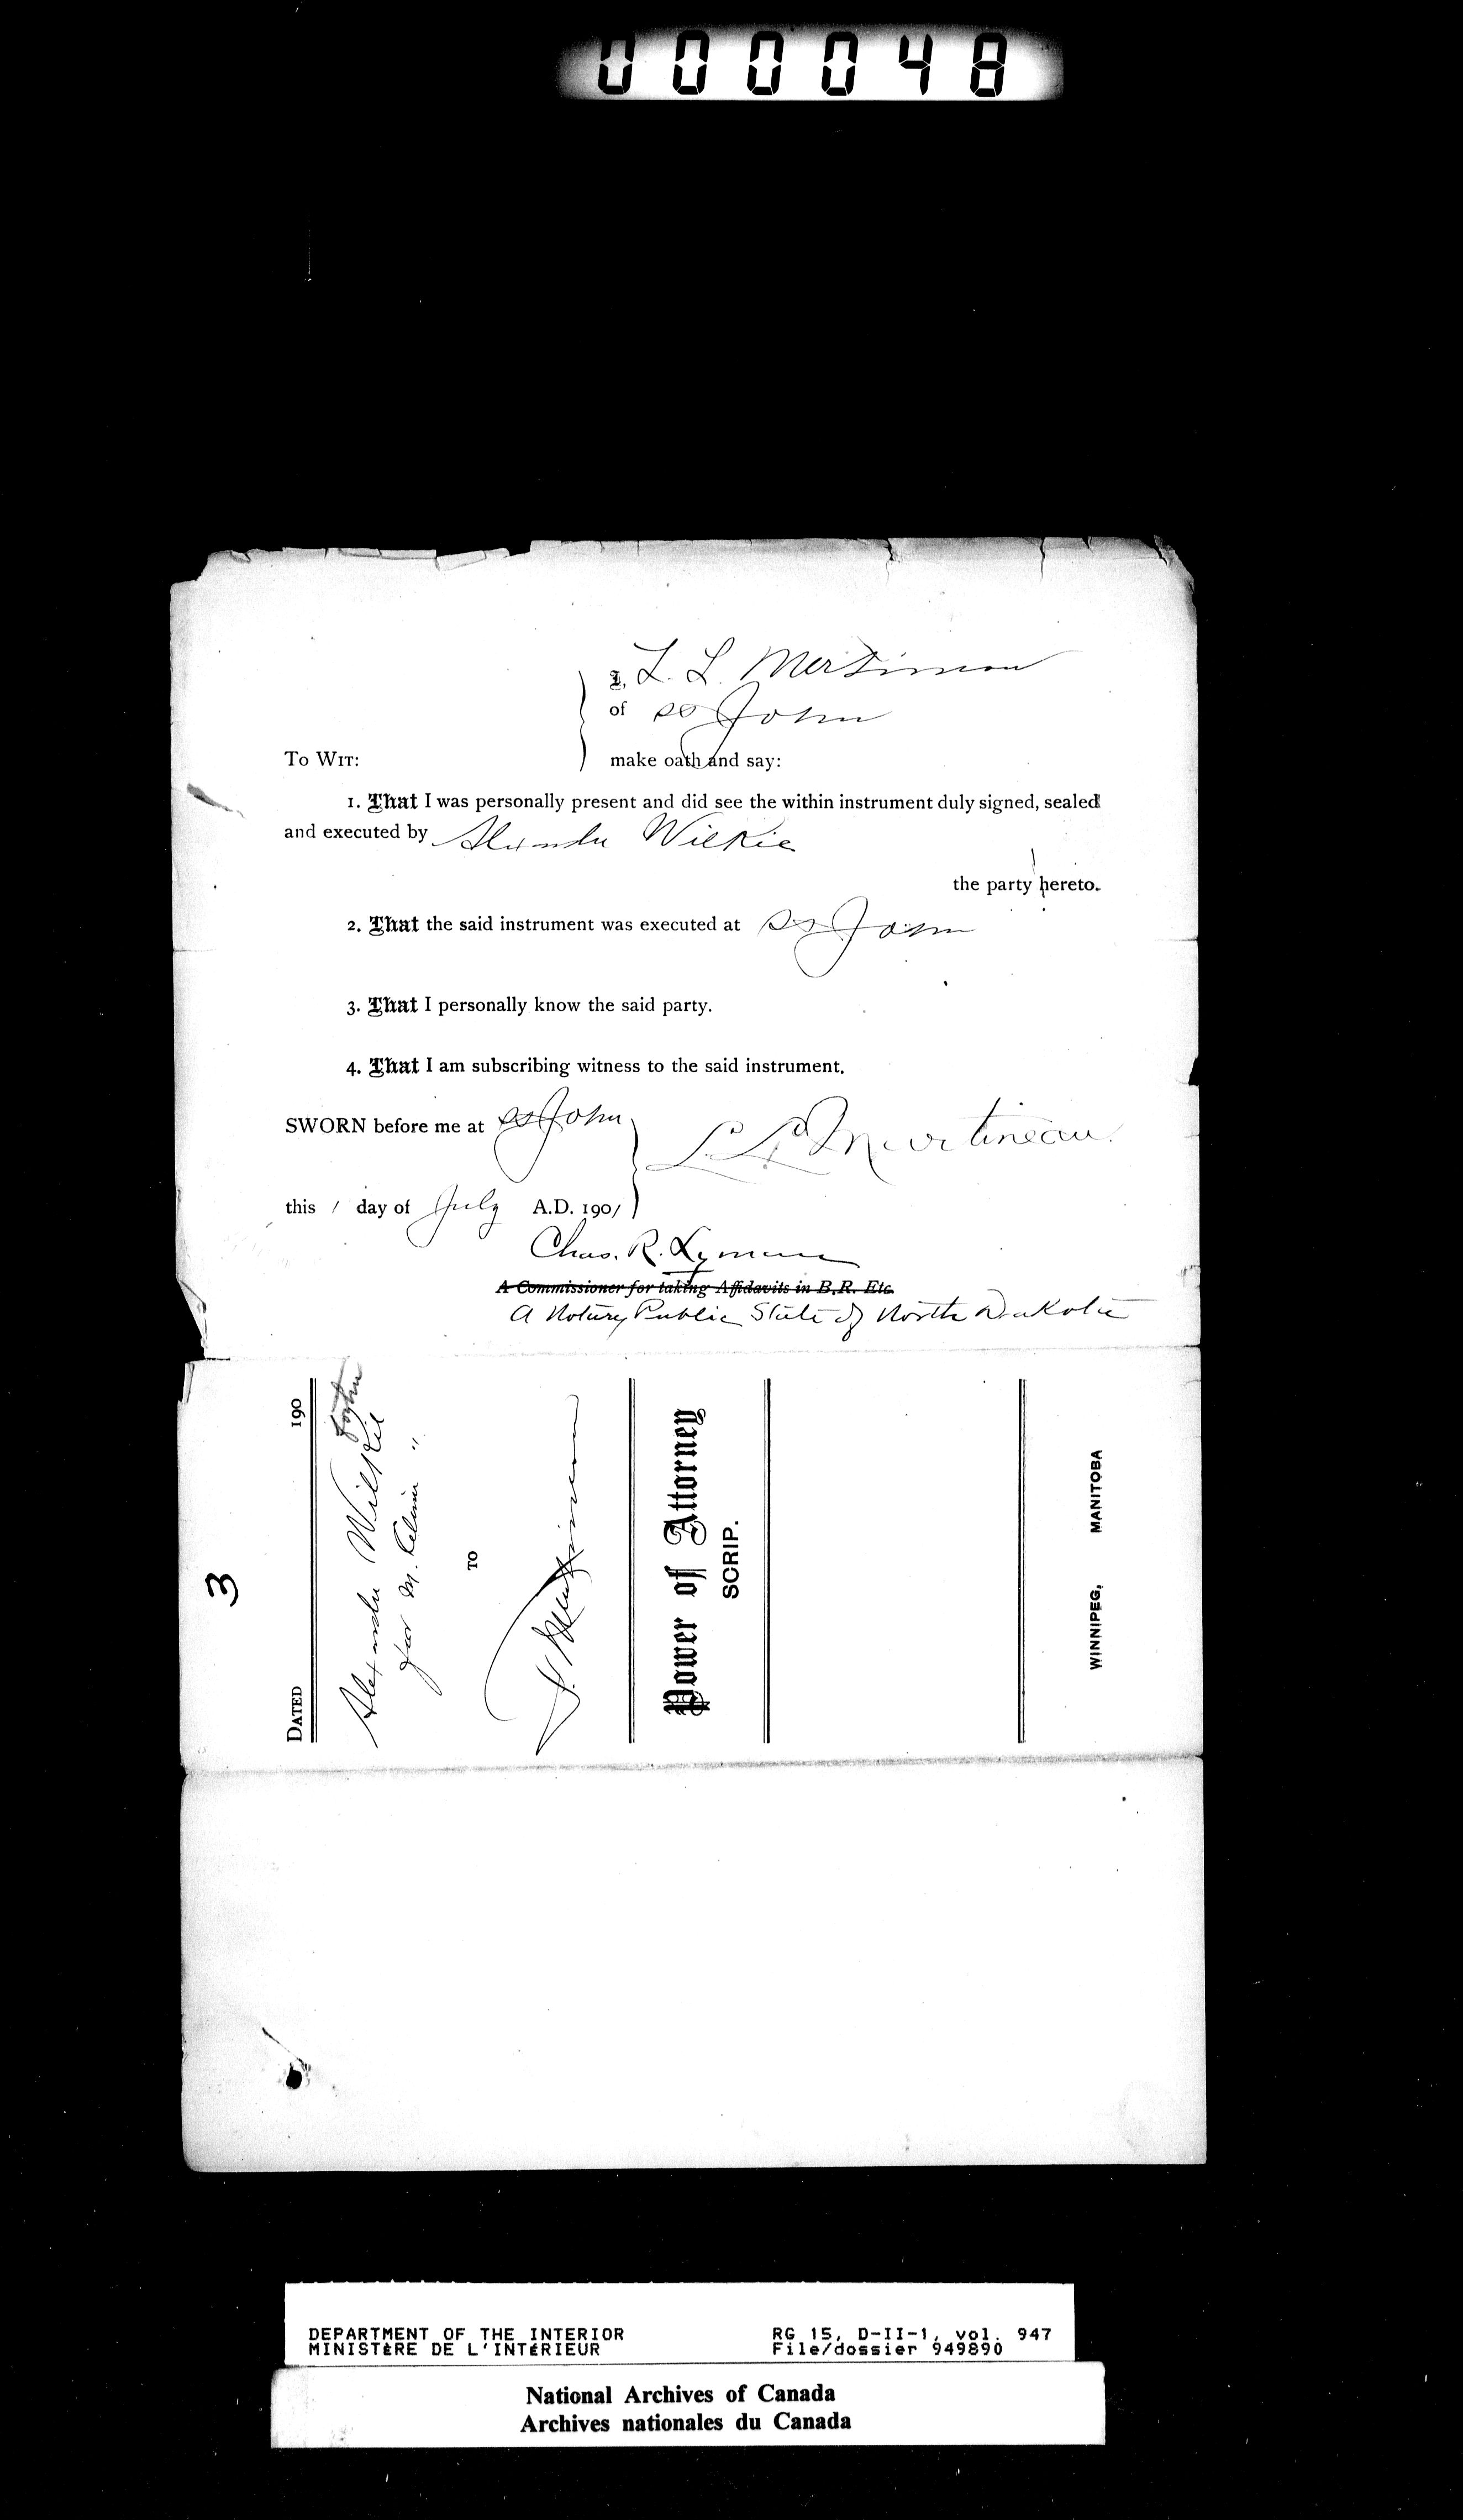 000048
I, L. L. Martineau
of St John
To Wit:
make oath and say:
1. That I was personally present and did see the within instrument duly signed, sealed
and executed by Alexander Wilkie
the party hereto.
2. That the said instrument was executed at St John
3. That I personally know the said party.
4. That I am subscribing witness to the said instrument.
SWORN before me at St John
L. L. Martineau
this 1 day of July A.D. 1901
Chas. R. Lyman
A Commissioner for taking Affidavits in B.R. Etc.
A Notary Public State of North Dakota
3
DATED 190
Alexander Wilkie
for M. "
TO
Martineau
Power of Attorney
SCRIP.
WINNIPEG, MANITOBA
DEPARTMENT OF THE INTERIOR
MINISTÈRE DE L'INTÉRIEUR
RG 15, D-II-1, vol. 947
File/dossier 949890
National Archives of Canada
Archives nationales du Canada